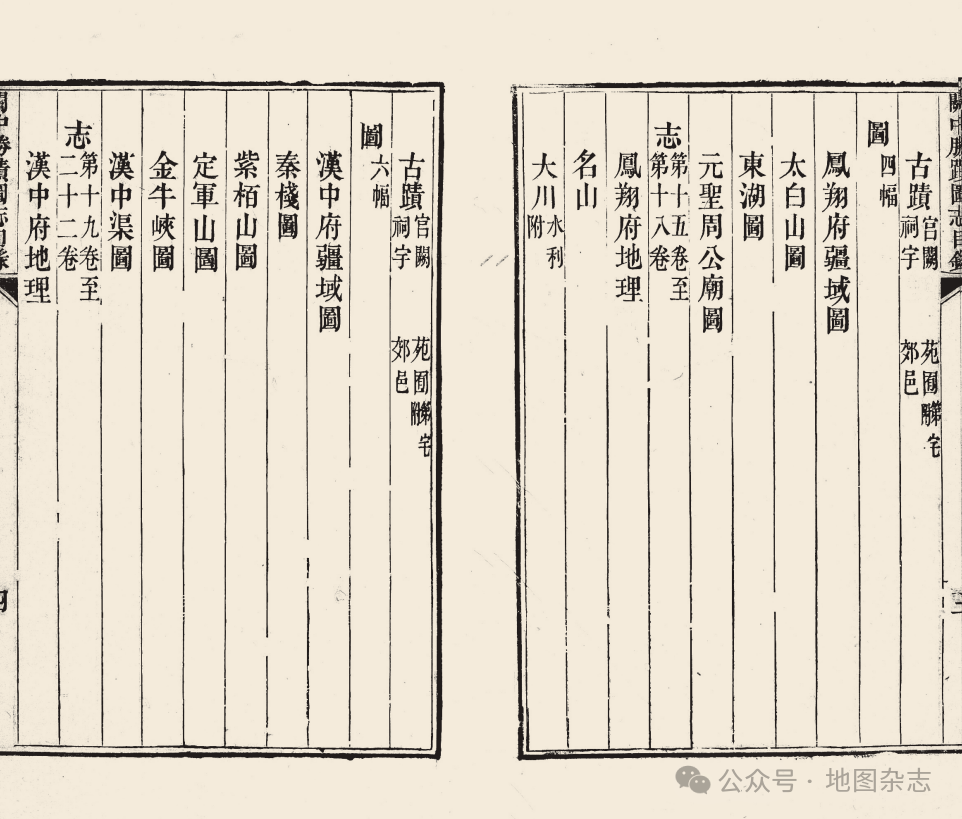 關中勝蹟圖志目錄
古蹟 宮闕 祠宇 苑囿 郊邑 第宅附
圖 四幅
鳳翔府疆域圖
太白山圖
東湖圖
元聖周公廟圖
志 第十五卷至第十八卷
鳳翔府地理
名山
大川 水利附
古蹟 宮闕 祠宇 苑囿 郊邑 第宅附
圖 六幅
漢中府疆域圖
秦棧圖
紫栢山圖
定軍山圖
金牛峽圖
漢中渠圖
志 第十九卷至二十二卷
漢中府地理
關中勝蹟圖志目錄
四
公众号 · 地图杂志